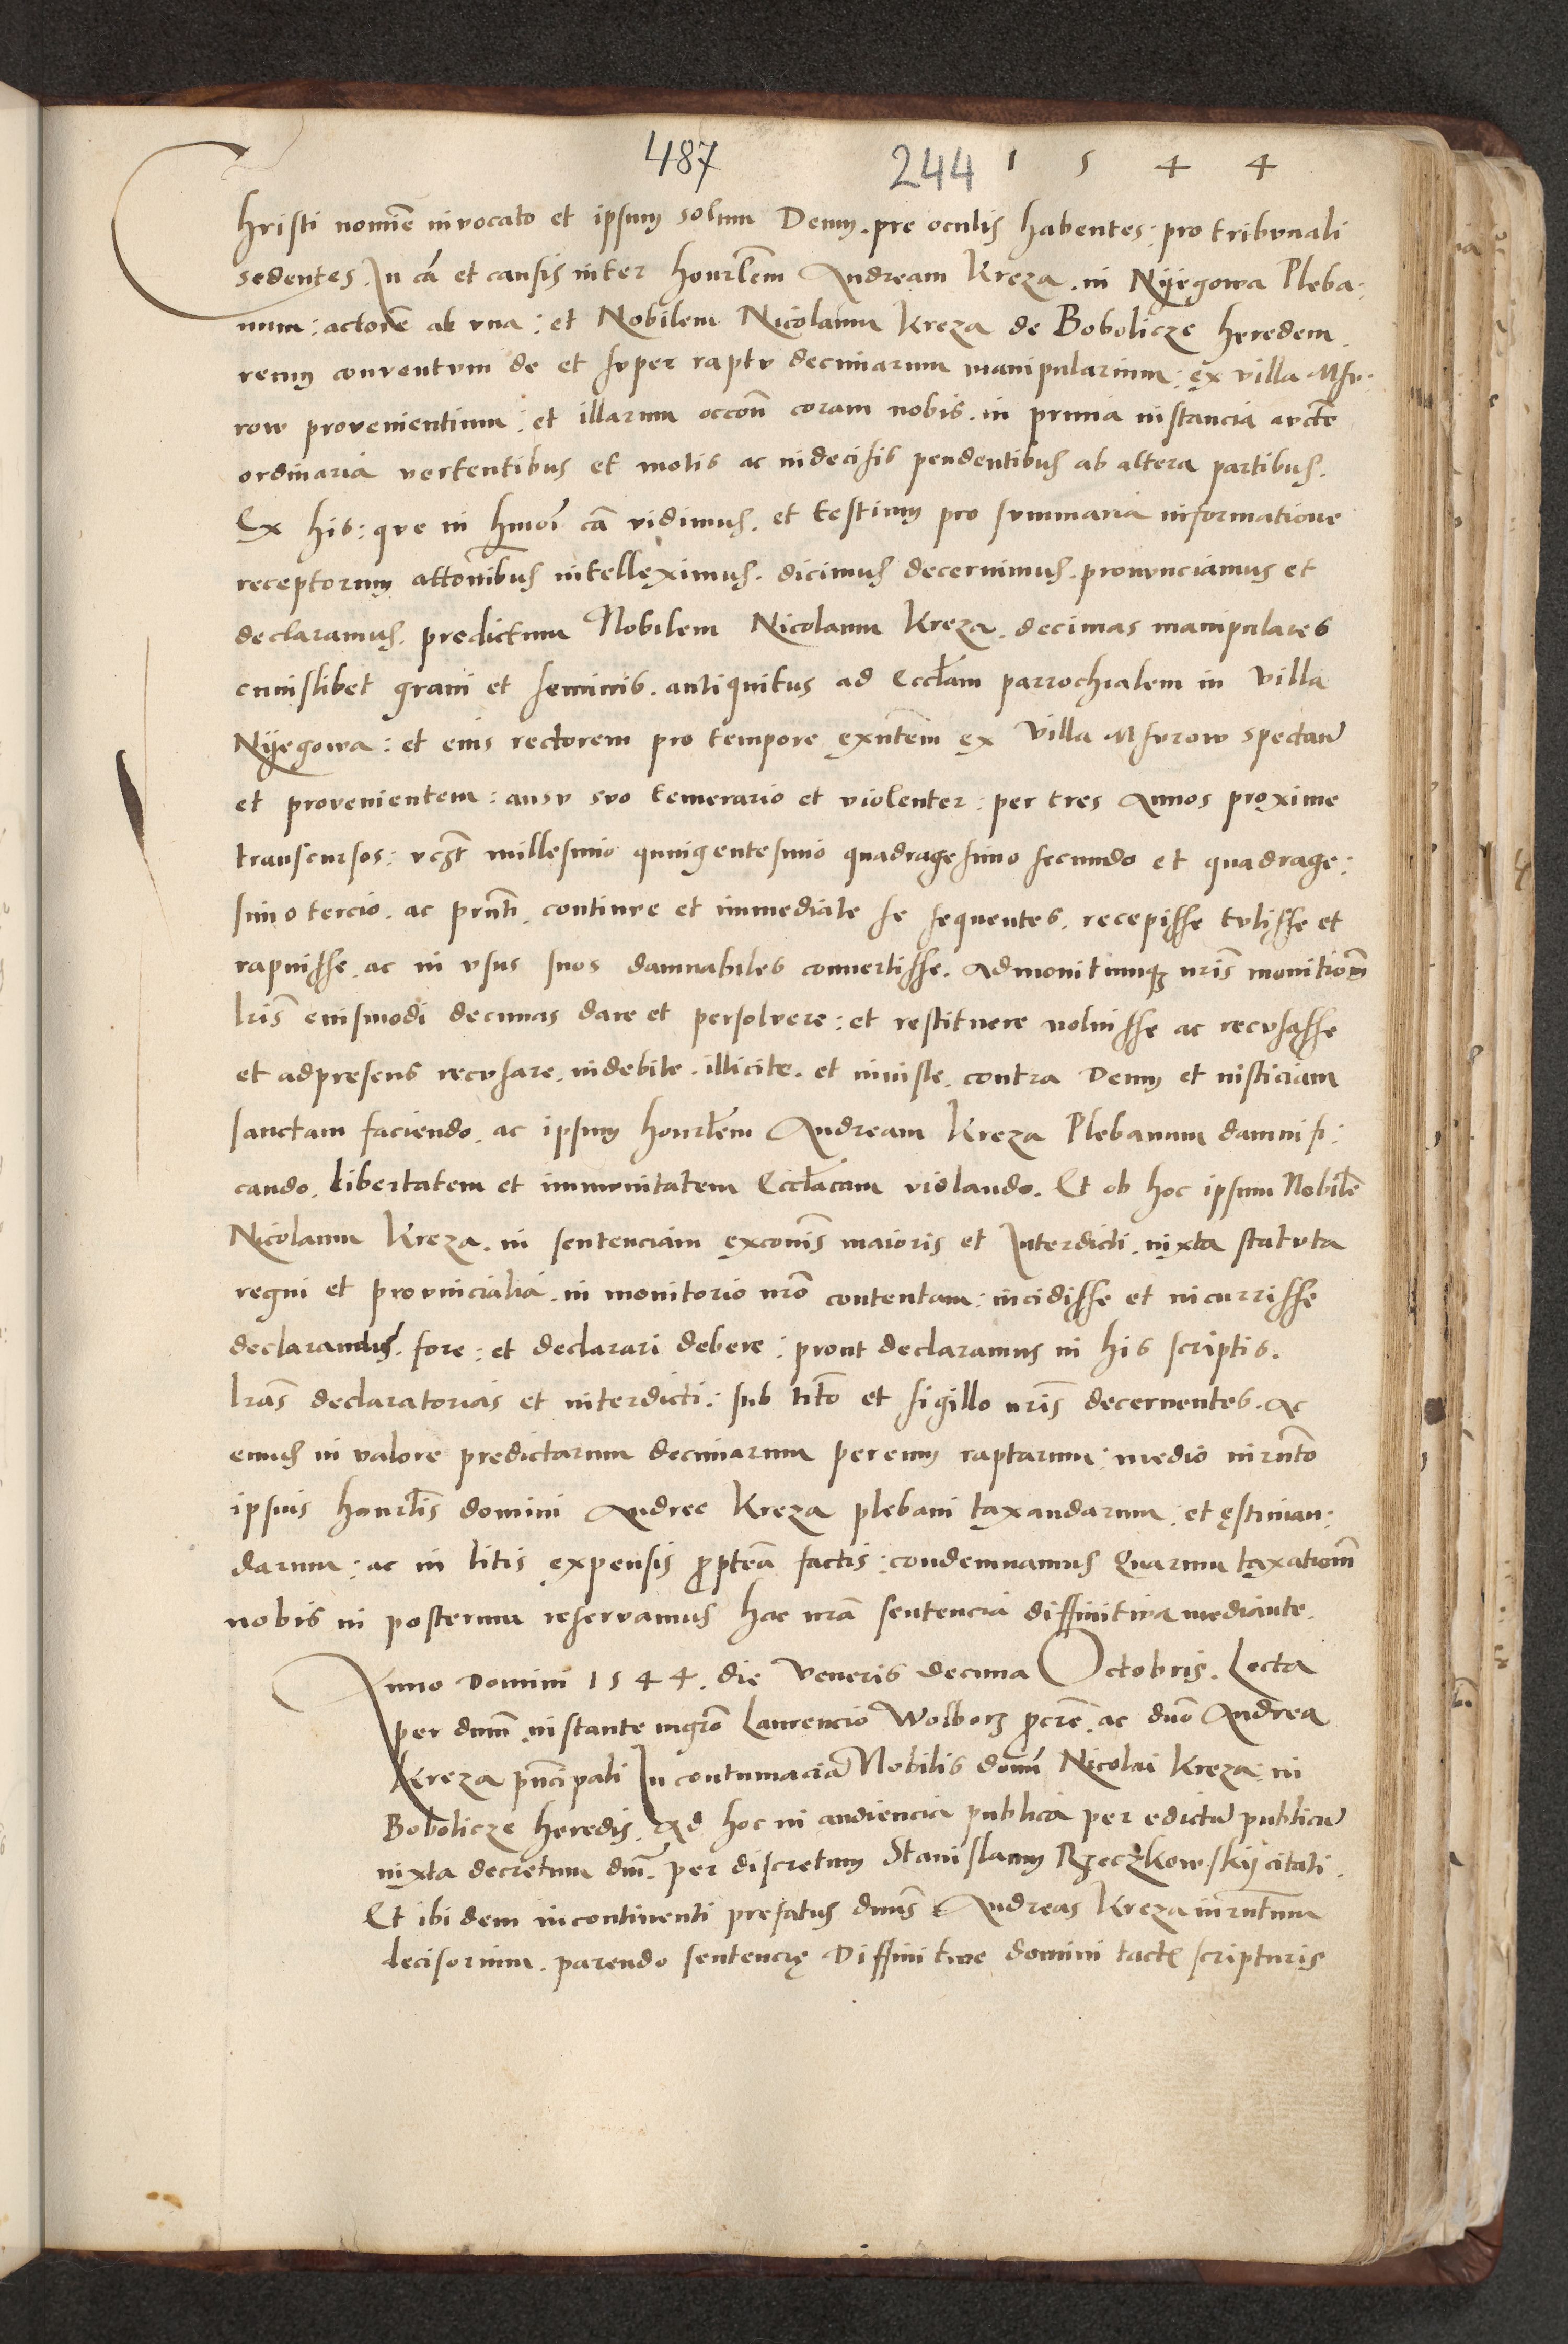 487 244 1 5 4 4
Christi nomĩe invocato et ipsum solum Deum. pre oculis habentes: pro tribunali
sedentes. In cã et causis inter honorlẽm Andream Kreza. in Nijegowa Pleba:
num: actorẽ ab una: et Nobilem Nicolaum Kreza de Bobolicze heredem.
reum conventum de et super raptu decimarum manipularium: ex villa Msu:
row provenientium: et illarum occoñ coram nobis. in prima instancia auctẽ
ordinaria vertentibus et motis ac indecisis pendentibus ab altera partibus.
Ex his: que in hmõi cã vidimus. et testium pro summaria informatione
receptorum attõnibus intelleximus. dicimus decernimus. pronunciamus et
declaramus. predictum Nobilem Nicolaum Kreza. decimas manipulares
cuiuslibet grani et seminis. antiquitus ad Ecclãm parrochialem in Villa
Nijegowa: et eius rectorem pro tempore exñtem ex Villa Msurow spectañ
et provenientem: ausu suo temerario et violenter: per tres Annos proxime
transcursos: vczt millesimo quingentesimo quadragesimo secundo et quadrage:
simo tercio. ac prñti. continue et immediate se sequentes. recepisse tulisse et
rapuisse. ac in usus suos damnabiles convertisse. Admonitumq nrĩs monitiom̃
lrĩs euismodi decimas dare et persolvere: et restituere noluisse ac recusasse
et adpresens recusare. indebite. illicite. et iniuste. contra Deum et iusticiam
sanctam faciendo. ac ipsum honorlẽm Andream Kreza Plebanum damnifi:
cando. libertatem et immunitatem Ecclãcam violando. Et ob hoc ipsum Nobilẽ
Nicolaum Kreza. in sentenciam excomĩs maioris et Interdicti. iuxta statuta
regni et provincialia. in monitorio nrõ contentam: incidisse et incurrisse
declarandus. fore: et declarari debere: prout declaramus in his scriptis.
lrãs declaratorias et interdicti: sub titõ et sigillo nrĩs decernentes. Ac
eumdẽ in valore predictarum decimarum per eum raptarum: medio iurñto
ipsius honorlĩs domini Andree Kreza plebani taxandarum: et ęstiman:
darum: ac in litis expensis ꝓpteã factis: condemnamus Quarum taxatiom̃
nobis in posterum reservamus hac nrã sentencia diffinitiva mediante.
Anno Domini 1544. die Veneris decima Octobris. Lecta
per dnum̃. instante mgrõ Laurencio Wolborz ꝓcrẽ. ac dnõ Andrea
Kreza pñcipali In contumaciã Nobilis domĩ Nicolai Kreza. in
Bobolicze heredis. Ad hoc in audiencia publica per edictũ publicũ
iuxta decretum dnĩ. per discretum Stanislaum Rzeczkowskij citati.
Et ibidem incontinenti prefatus dnus̃ Andreas Kreza iurñtum
decisorium. parendo sentencię Diffinitive domini tactẽ scripturis